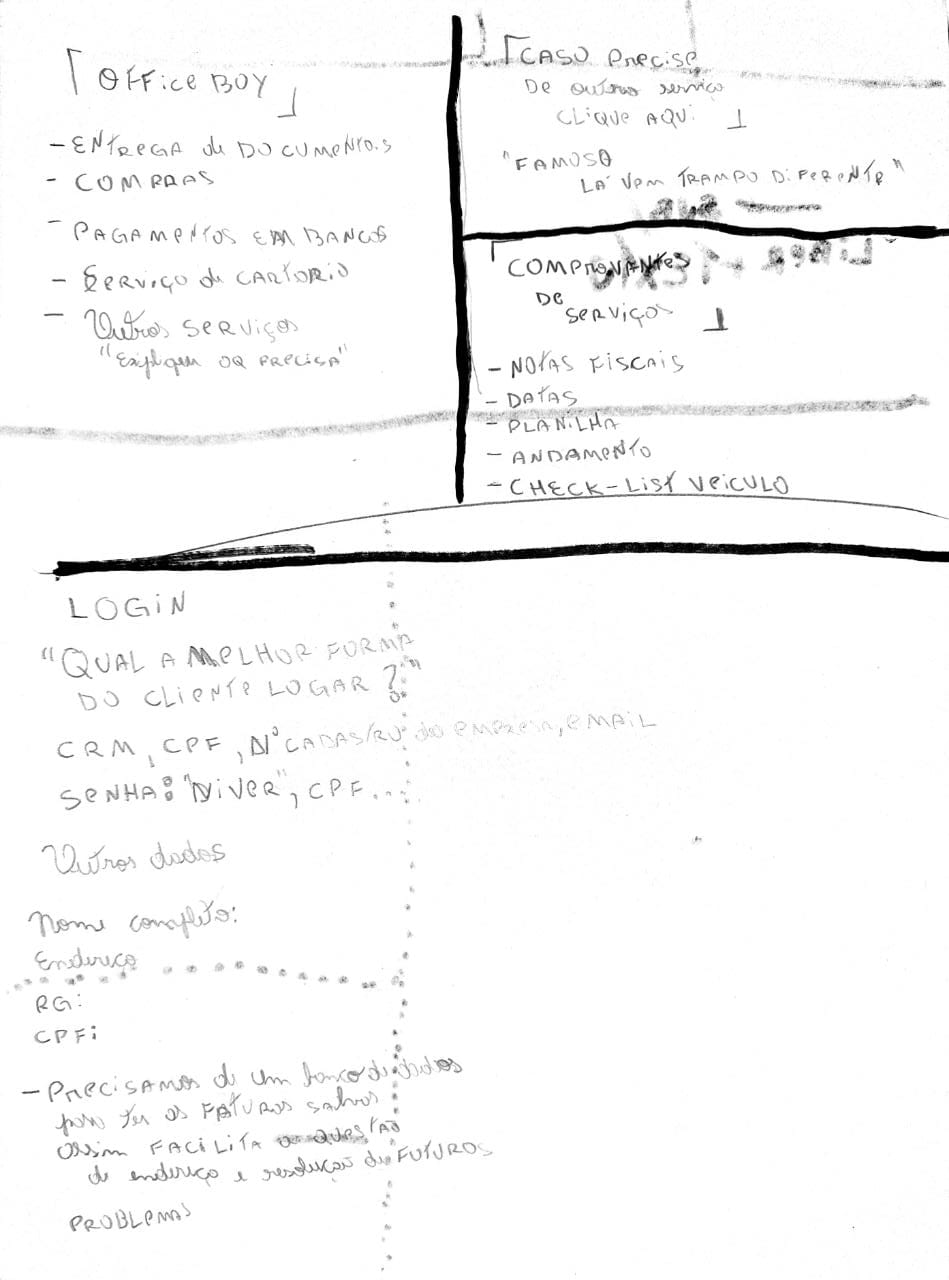 OFFice BOY
- ENTREGA de DOCUMENTOS
- COMPRAS
- PAGAMENTOS EM BANCOS
- Serviço de CARTORIO
- Outros SERViÇOS
"Expliquem OQ PRECISA"
CASO Precise
De outro serviço
CLIQUE AQUI
"FAMOSO
LÁ VEM TRAMPO DiFERENTE"
COMPROVANTES
De
SERViÇOS
- NOTAS FiSCAiS
- DATAS
- PLANiLHA
- ANDAMENTO
- CHECK-LiST VEiCULO
LOGiN
"QUAL A MELHOR FORMA
DO CLiENTE LOGAR ?"
CRM, CPF, N° CADASTRO da EMPRESA, EMAiL
SENHA: "NiVER", CPF...
Outros dados
Nome completo:
Endereço
RG:
CPF:
- PRECISAMOS de um banco de dados
para ter as FATURAS salvas
assim FACiLiTA a QUESTÃO
de endereço e resolução de FUTUROS
PROBLEMAS